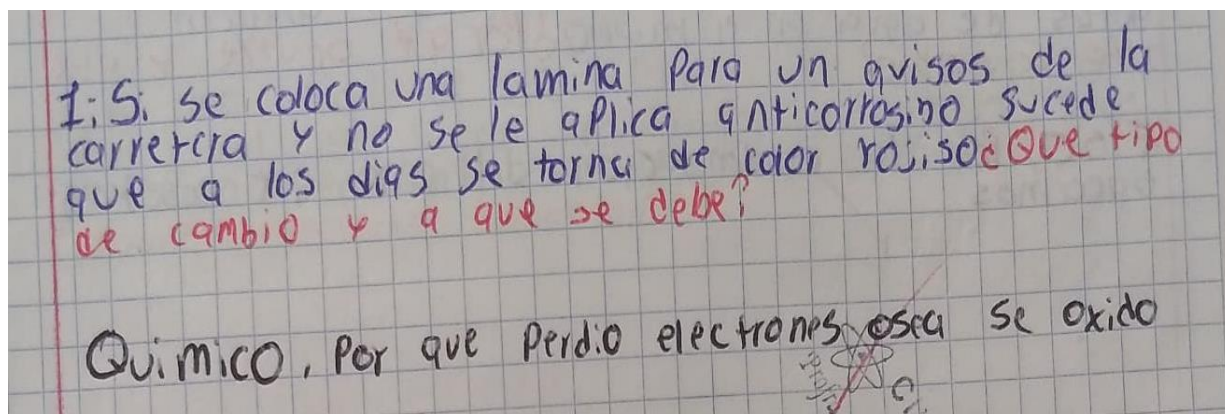 1: Si se coloca una lamina Para un avisos de la
carretera y no se le aplica anticorrosino sucede
que a los dias se torna de color rojiso ¿Que tipo
de cambio y a que se debe?
Quimico, Por que Perdio electrones osea se oxido